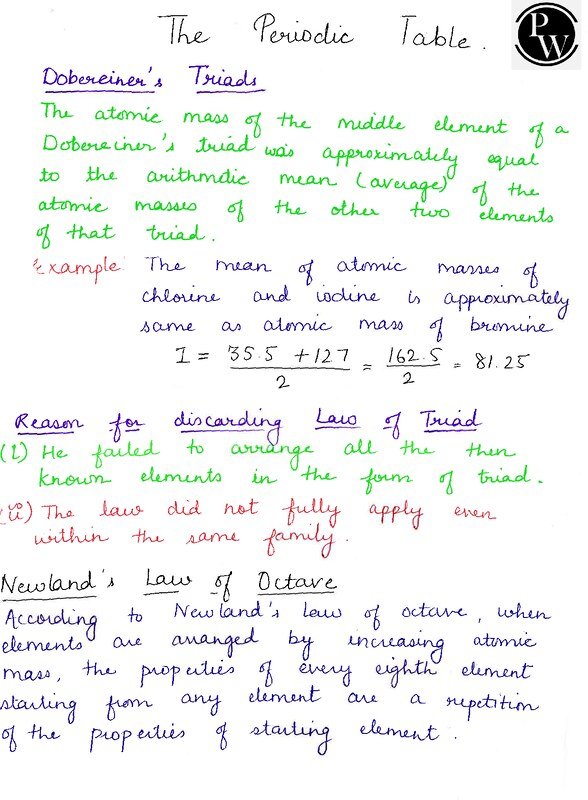 The Periodic Table.
PW
Dobereiner's Triads
The atomic mass of the middle element of a
Dobereiner's triad was approximately equal
to the arithmdic mean (average) of the
atomic masses of the other two elements
of that triad.
Example The mean of atomic masses of
chlorine and iodine is approximately
same as atomic mass of bromine
I = 35.5 + 127 / 2 = 162.5 / 2 = 81.25
Reason for discarding Law of Triad
(i) He failed to arrange all the then
known elements in the form of triad.
(ii) The law did not fully apply even
within the same family.
Newland's Law of Octave
According to Newland's law of octave, when
elements are arranged by increasing atomic
mass, the properties of every eighth element
starting from any element are a repetition
of the properties of starting element.